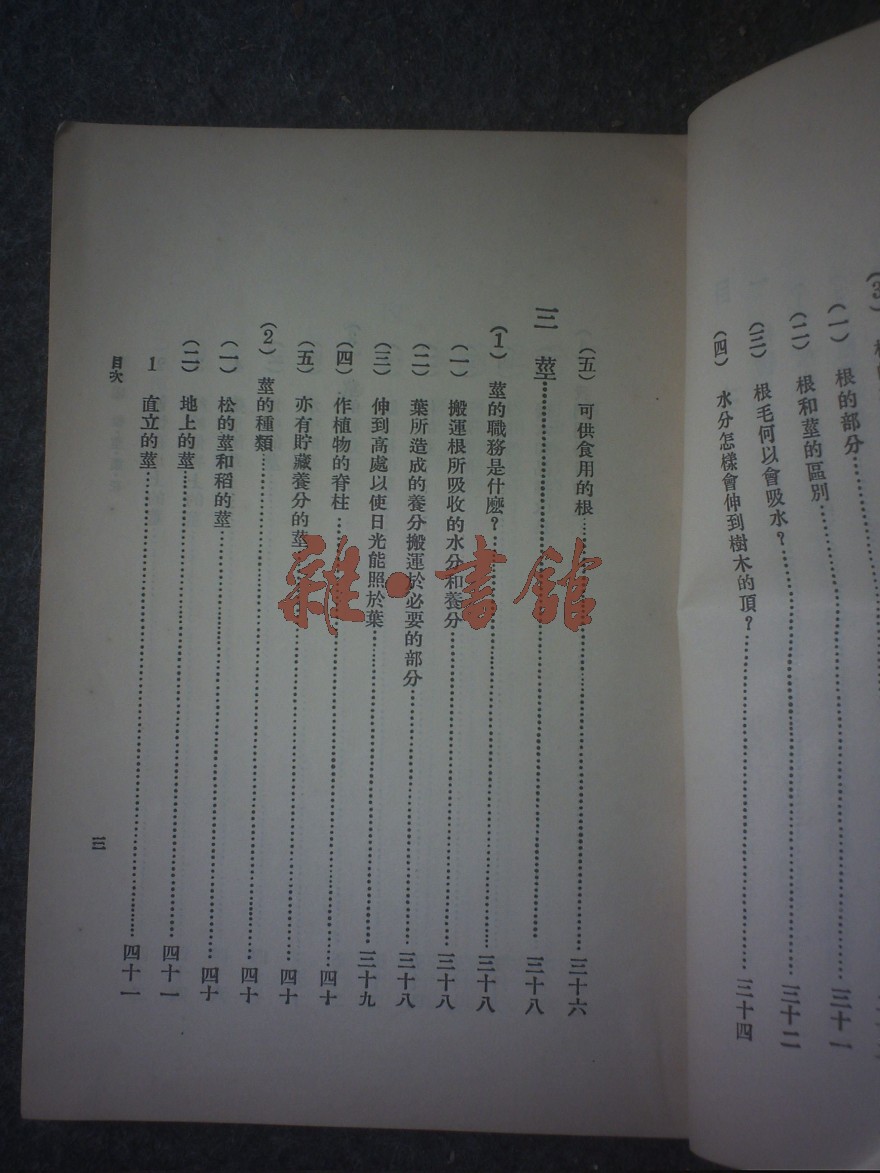 (一) 根的部分……三十一
(二) 根和莖的區別……三十二
(三) 根毛何以會吸水?
(四) 水分怎樣會伸到樹木的頂?……三十四
(五) 可供食用的根……三十六
三 莖……三十八
(1) 莖的職務是什麼?……三十八
(一) 搬運根所吸收的水分和養分……三十八
(二) 葉所造成的養分搬運於必要的部分……三十八
(三) 伸到高處以使日光能照於葉……三十九
(四) 作植物的脊柱……四十
(五) 亦有貯藏養分的莖……四十
(2) 莖的種類……四十
(一) 松的莖和稻的莖……四十
(二) 地上的莖……四十一
1 直立的莖……四十一
目次
三
雜·書館